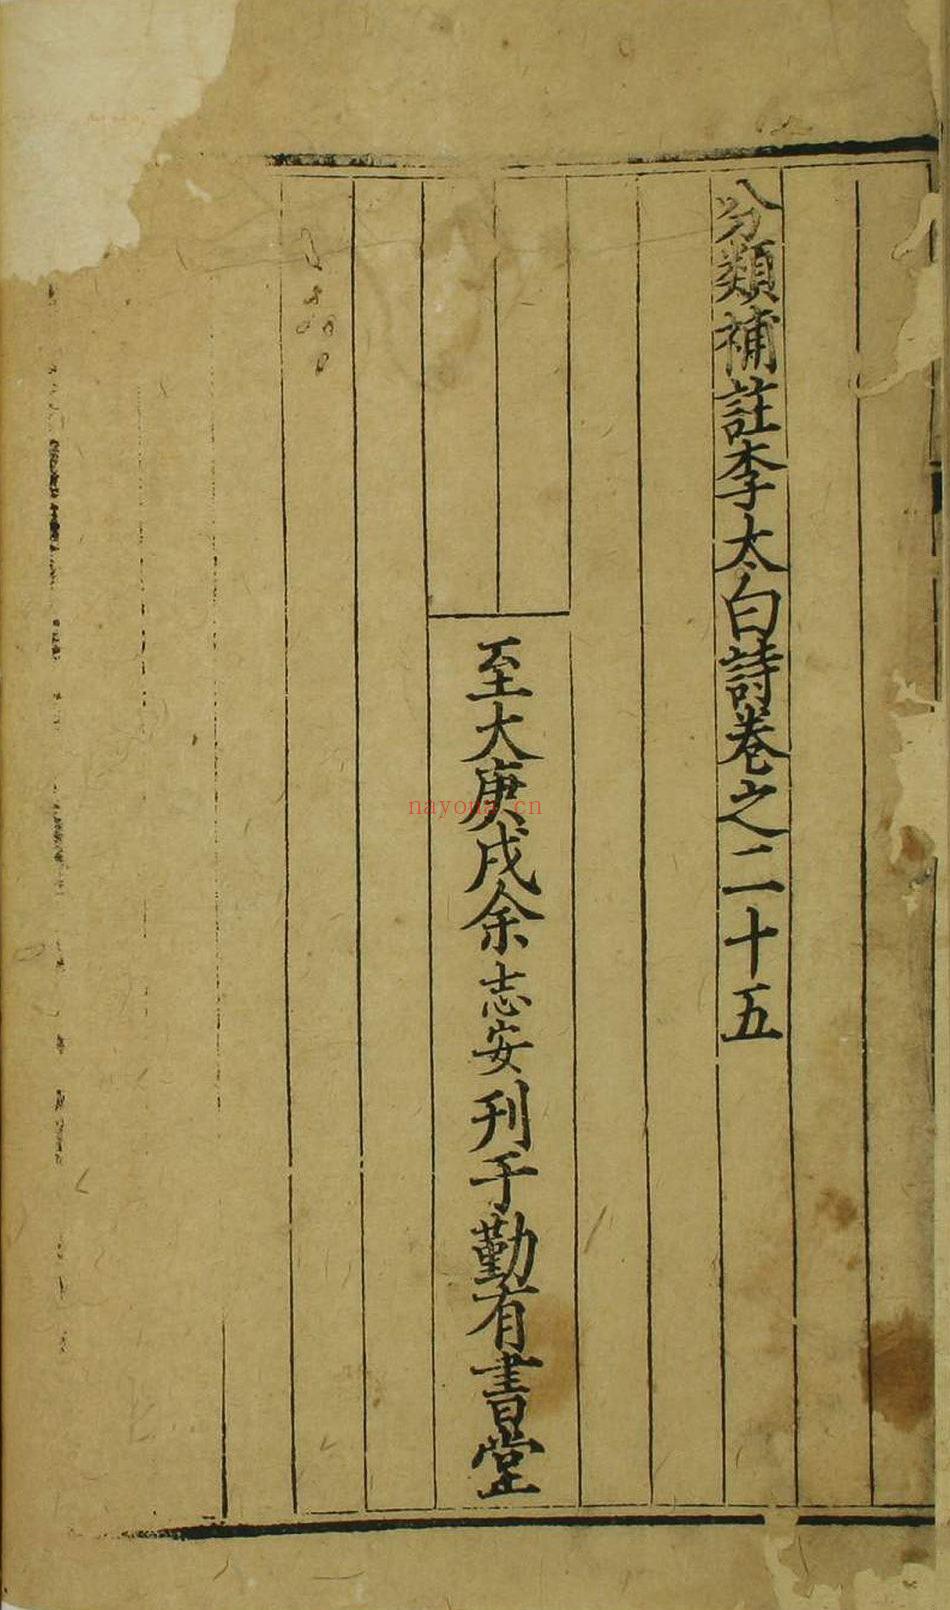 分類補註李太白詩卷之二十五
至大庚戌余志安刊于勤有書堂
nayona.cn